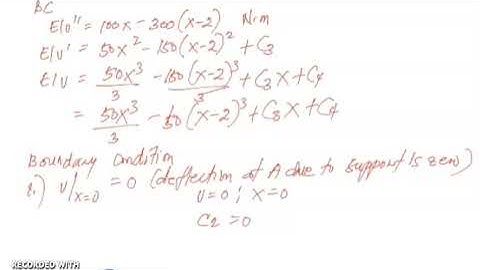 BC
EIυ'' = 100x - 300(x-2) N.m
EIυ' = 50x² - 150(x-2)² + C3
EIυ = 50x³/3 - 150(x-2)³/3 + C3x + C4
= 50x³/3 - 50(x-2)³ + C3x + C4
Boundary Condition
1.) υ|x=0 = 0 (deflection at A due to support is zero)
υ=0 ; x=0
C2 = 0
RECORDED WITH